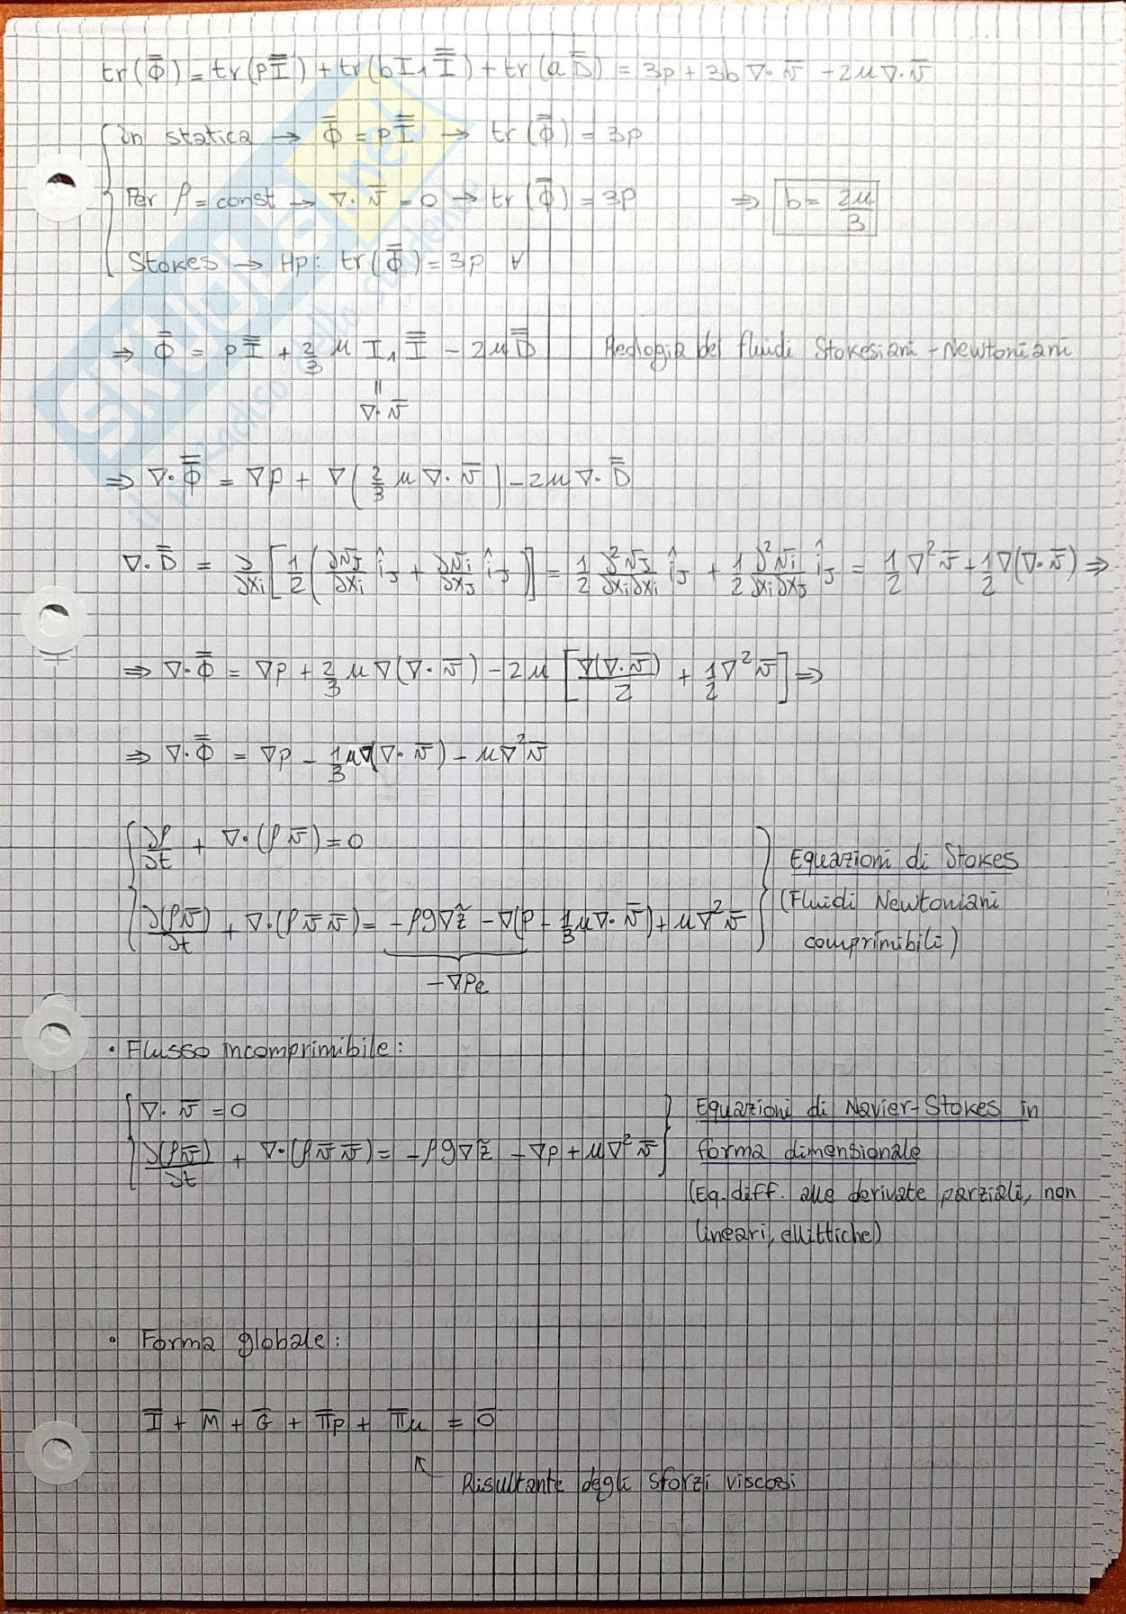 tr(Φ̿) = tr(pI̿) + tr(bI₁I̿) + tr(aD̿) = 3p + 3b∇·v̄ - 2μ∇·v̄
in statica → Φ̿ = pI̿ → tr(Φ̿) = 3p
Per ρ = const → ∇·v̄ = 0 → tr(Φ̿) = 3p ⇒ b = 2μ/3
Stokes → Hp: tr(Φ̿) = 3p ∀
⇒ Φ̿ = pI̿ + 2/3 μ I₁I̿ - 2μD̿ Reologia dei fluidi Stokesiani-Newtoniani
=
∇·v̄
⇒ ∇·Φ̿ = ∇p + ∇(2/3 μ∇·v̄) - 2μ∇·D̿
∇·D̿ = ∂/∂xi [1/2 (∂vj/∂xi îj + ∂vi/∂xj îj)] = 1/2 ∂²vj/∂xi∂xi îj + 1/2 ∂²vi/∂xi∂xj îj = 1/2 ∇²v̄ + 1/2 ∇(∇·v̄) ⇒
⇒ ∇·Φ̿ = ∇p + 2/3 μ∇(∇·v̄) - 2μ [∇(∇·v̄)/2 + 1/2 ∇²v̄] ⇒
⇒ ∇·Φ̿ = ∇p - 1/3 μ∇(∇·v̄) - μ∇²v̄
∂ρ/∂t + ∇·(ρv̄) = 0
Equazioni di Stokes
(Fluidi Newtoniani
∂(ρv̄)/∂t + ∇·(ρv̄v̄) = -ρg∇z̃ - ∇(p - 1/3 μ∇·v̄) + μ∇²v̄
comprimibili)
-∇Pe
• Flusso incomprimibile:
∇·v̄ = 0
Equazioni di Navier-Stokes in
∂(ρv̄)/∂t + ∇·(ρv̄v̄) = -ρg∇z̃ - ∇p + μ∇²v̄
forma dimensionale
(Eq. diff. alle derivate parziali, non
lineari, ellittiche)
• Forma globale:
Ī + M̄ + Ḡ + Π̄p + Π̄μ = 0̄
Risultante degli sforzi viscosi